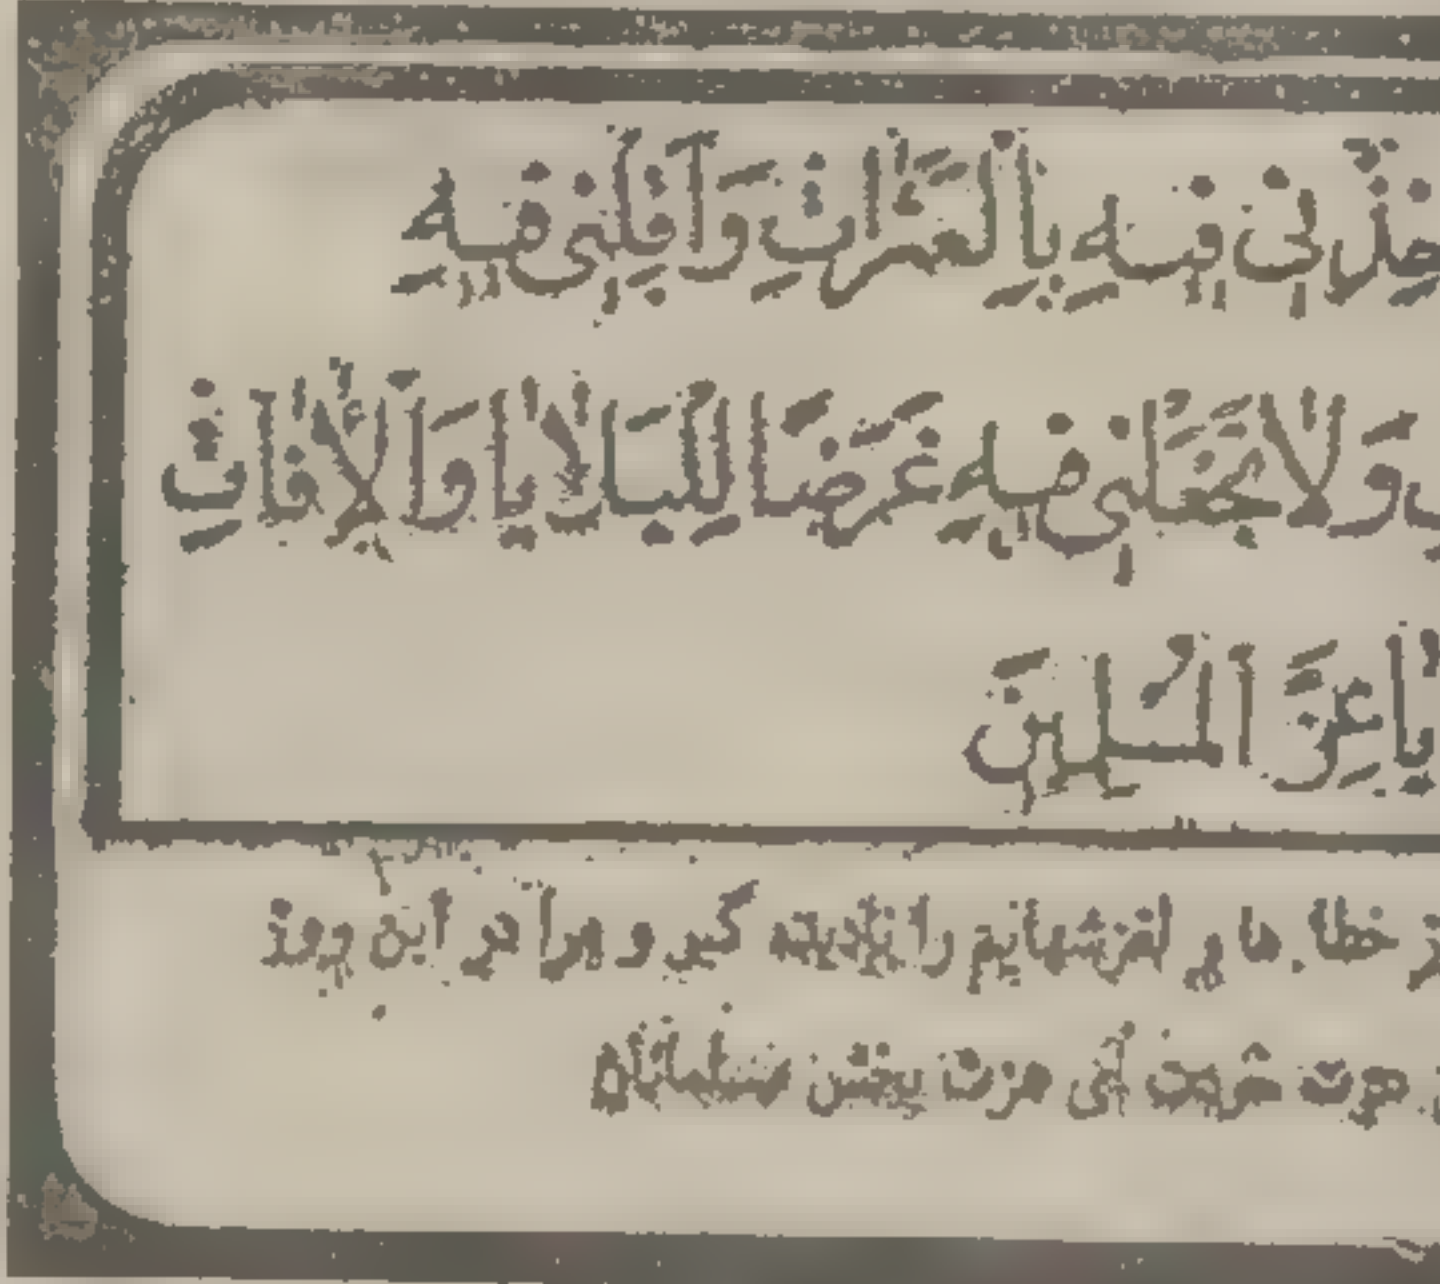 فِيهِ بِالْعَثَرَاتِ وَأَقِلْنِى فِيهِ
وَلَا تَجْعَلْنِى فِيهِ غَرَضًا لِلْبَلَايَا وَالْآفَاتِ
يَا عِزَّ الْمُسْلِمِينَ
خطا ها و لغزشهایم را نادیده گیر و مرا در این روز
ای عزت بخش مسلمانان